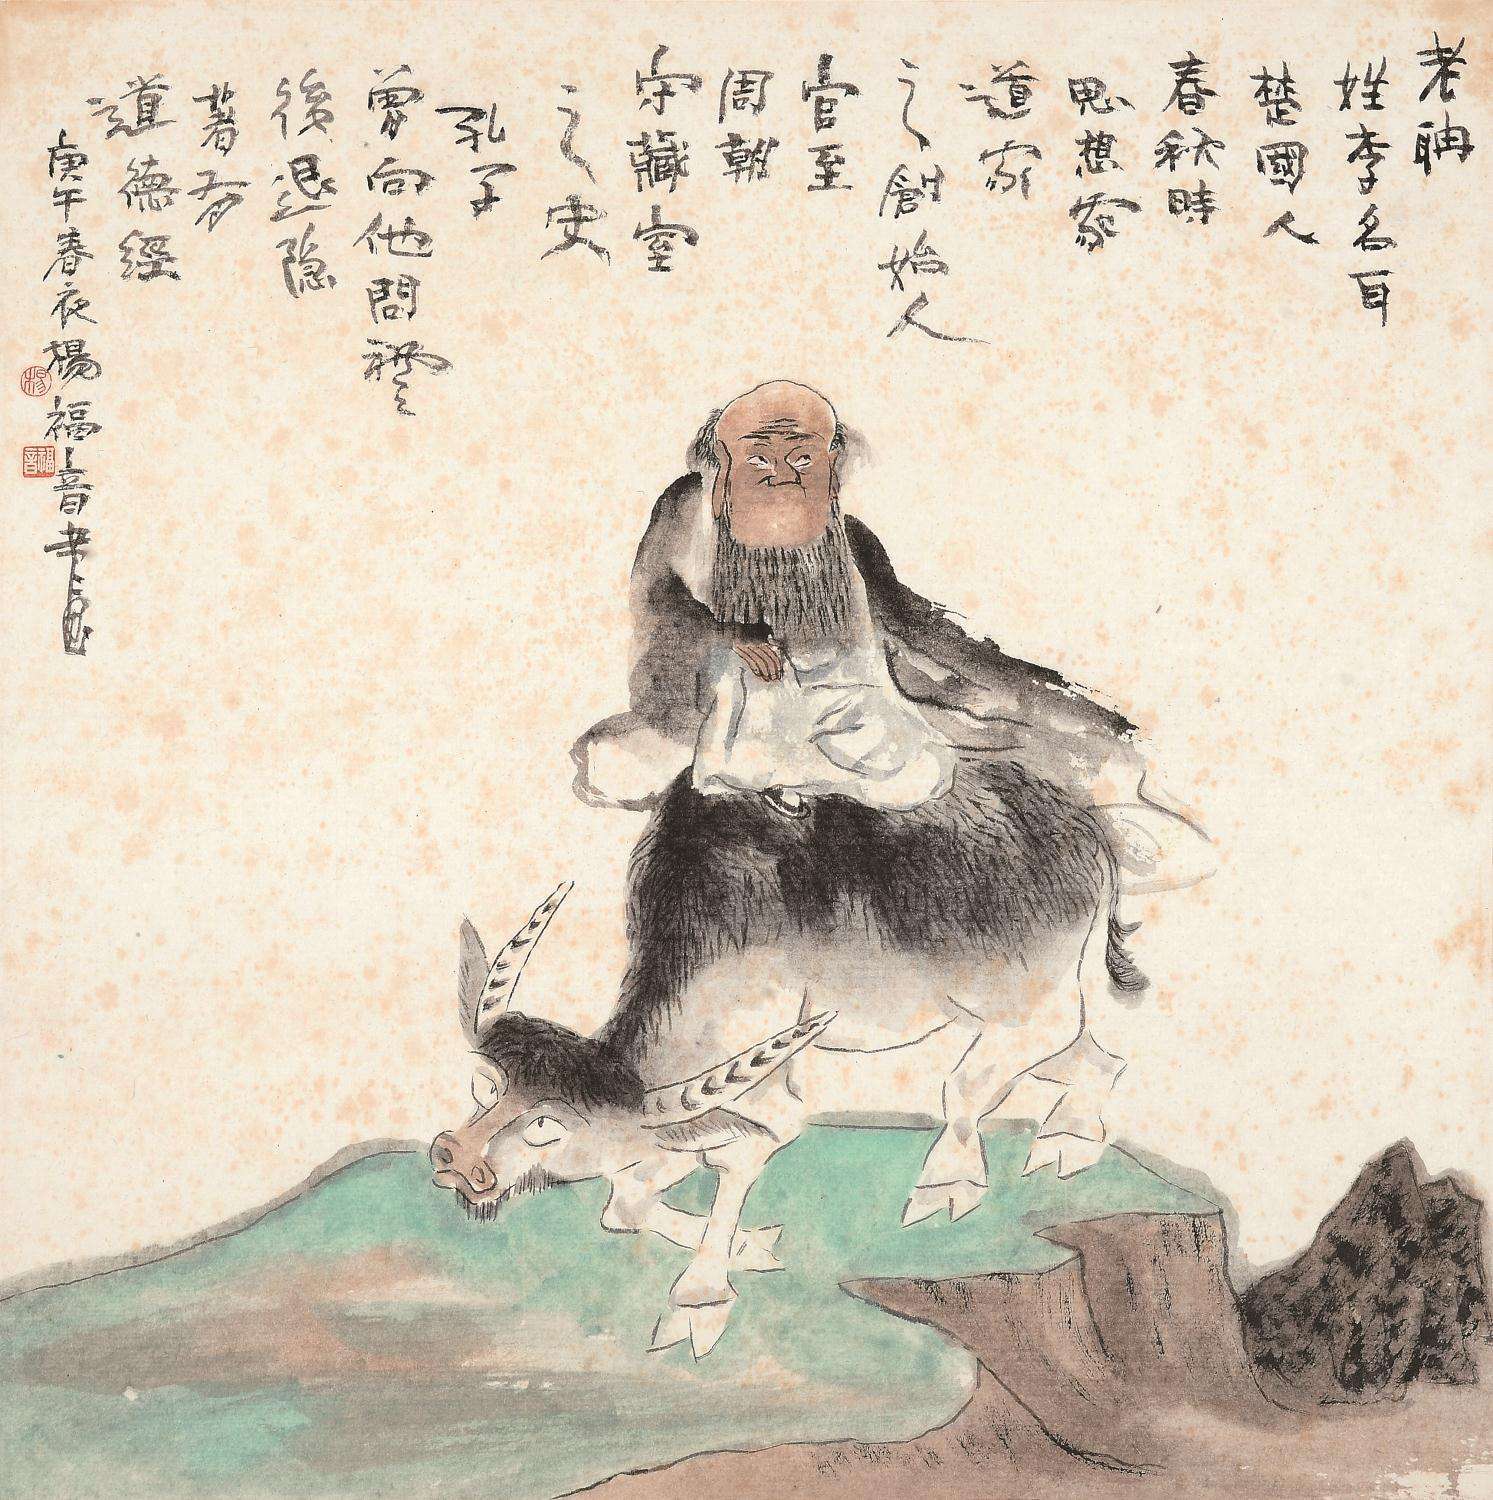 老聃
姓李名耳
楚國人
春秋時
思想家
道家
之創始人
官至
周朝
守藏室
之史
孔子
曾向他問禮
後退隐
著有
道德經
庚午春夜楊福音書畫
楊
福音